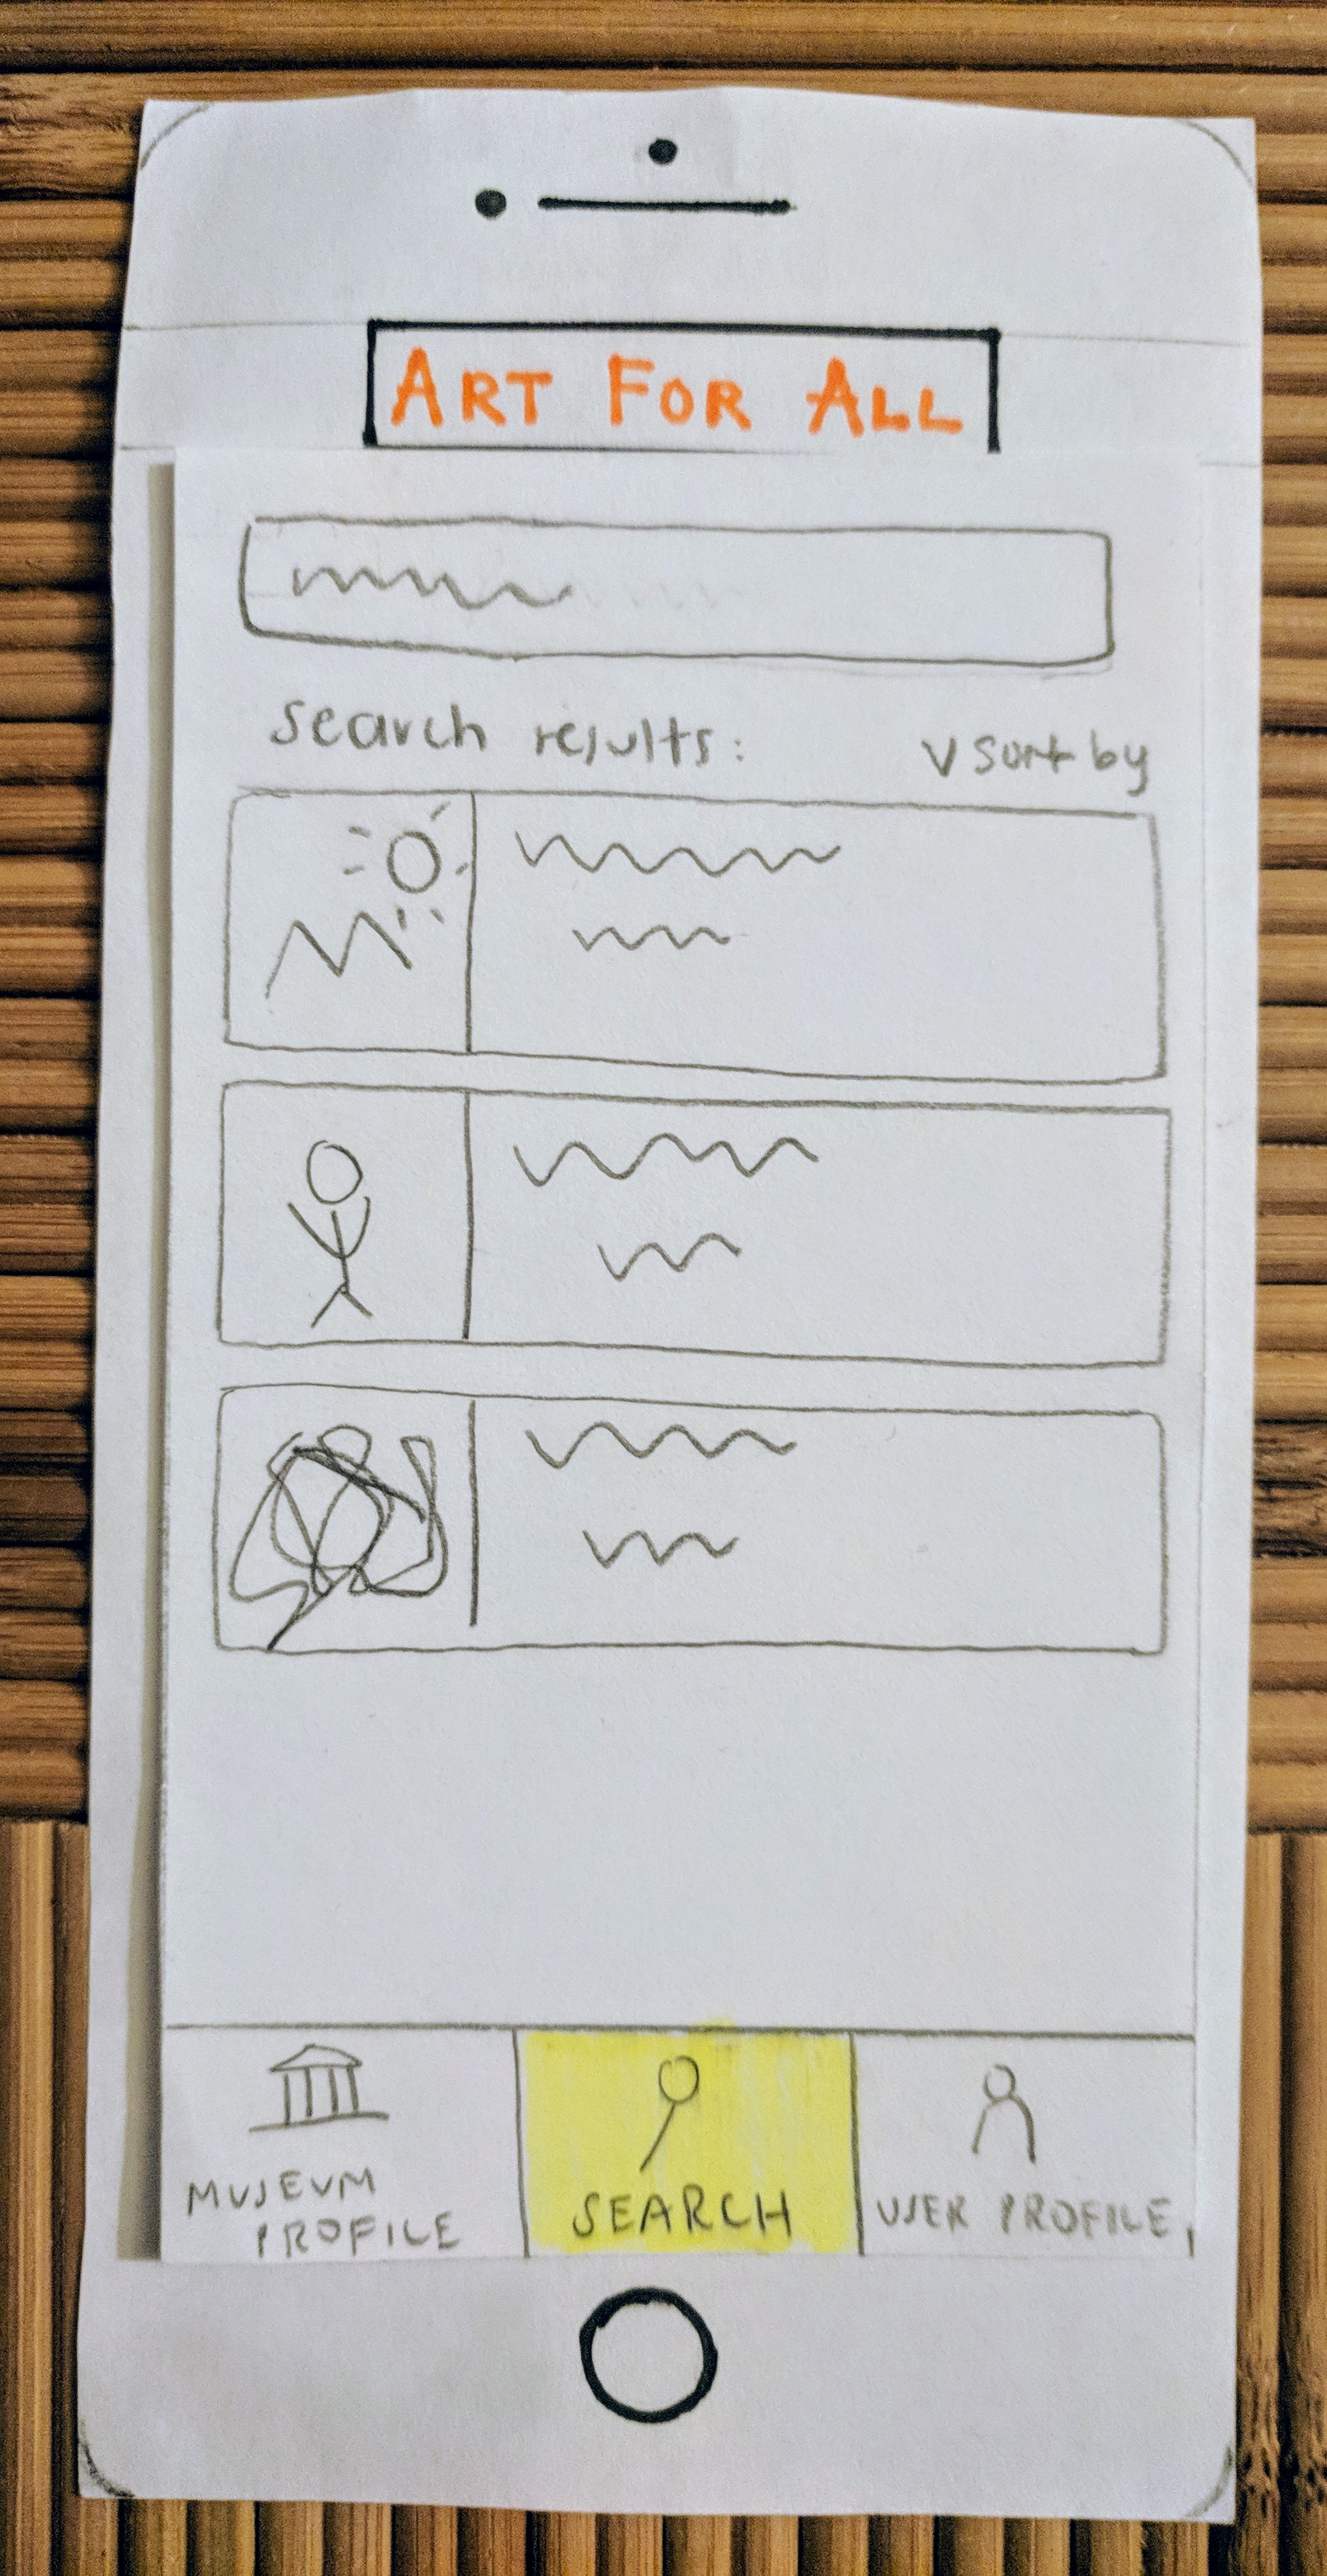 ART FOR ALL
search results:
sort by
MUSEUM
PROFILE
SEARCH
USER PROFILE